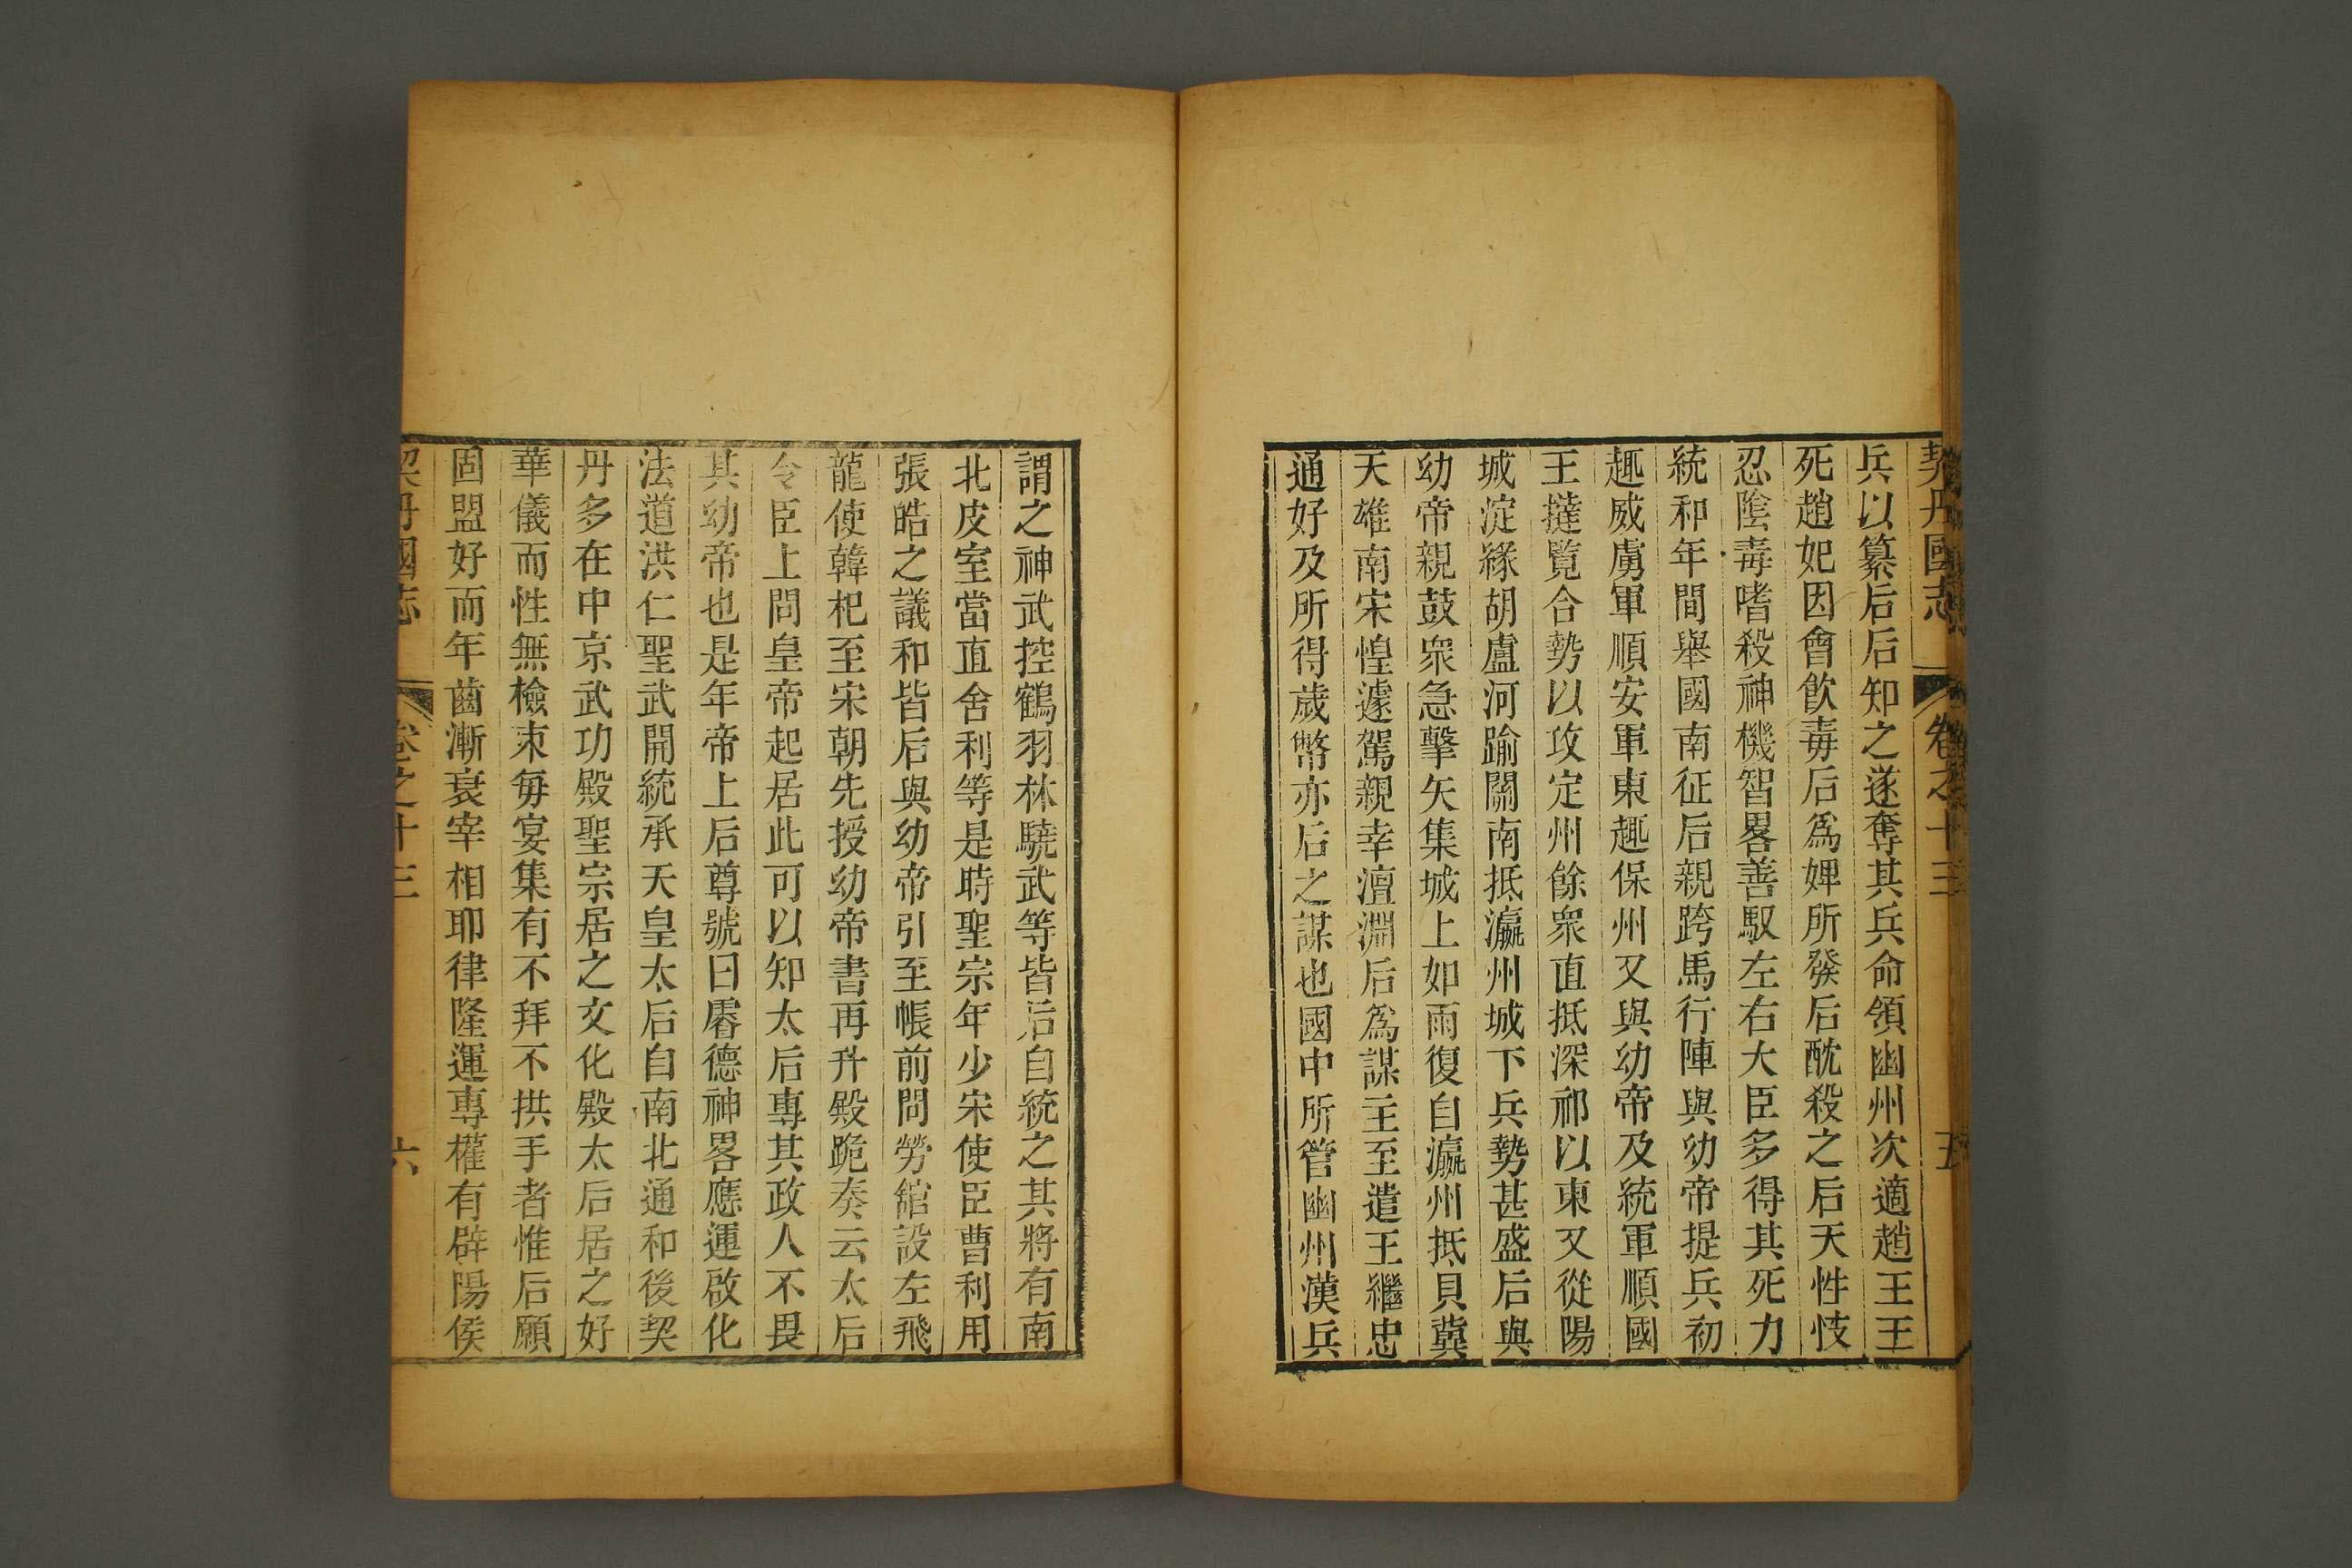 契丹國志 卷之十三 五
兵以纂后后知之遂奪其兵命領幽州次適趙王王
死趙妃因會飲毒后爲婢所發后酖殺之后天性忮
忍陰毒嗜殺神機智畧善馭左右大臣多得其死力
統和年間舉國南征后親跨馬行陣與幼帝提兵初
趣威虜軍順安軍東趣保州又與幼帝及統軍順國
王撻覽合勢以攻定州餘衆直抵深祁以東又從陽
城淀緣胡盧河踰關南抵瀛州城下兵勢甚盛后與
幼帝親鼓衆急擊矢集城上如雨復自瀛州抵貝冀
天雄南宋惶遽駕親幸澶淵后爲謀主至遣王繼忠
通好及所得歲幣亦后之謀也國中所管幽州漢兵
謂之神武控鶴羽林驍武等皆后自統之其將有南
北皮室當直舍利等是時聖宗年少宋使臣曹利用
張皓之議和皆后與幼帝引至帳前問勞館設左飛
龍使韓杞至宋朝先授幼帝書再升殿跪奏云太后
令臣上問皇帝起居此可以知太后專其政人不畏
其幼帝也是年帝上后尊號曰睿德神畧應運啟化
法道洪仁聖武開統承天皇太后自南北通和後契
丹多在中京武功殿聖宗居之文化殿太后居之好
華儀而性無檢束每宴集有不拜不拱手者惟后願
固盟好而年齒漸衰宰相耶律隆運專權有辟陽侯
契丹國志 卷之十三 六